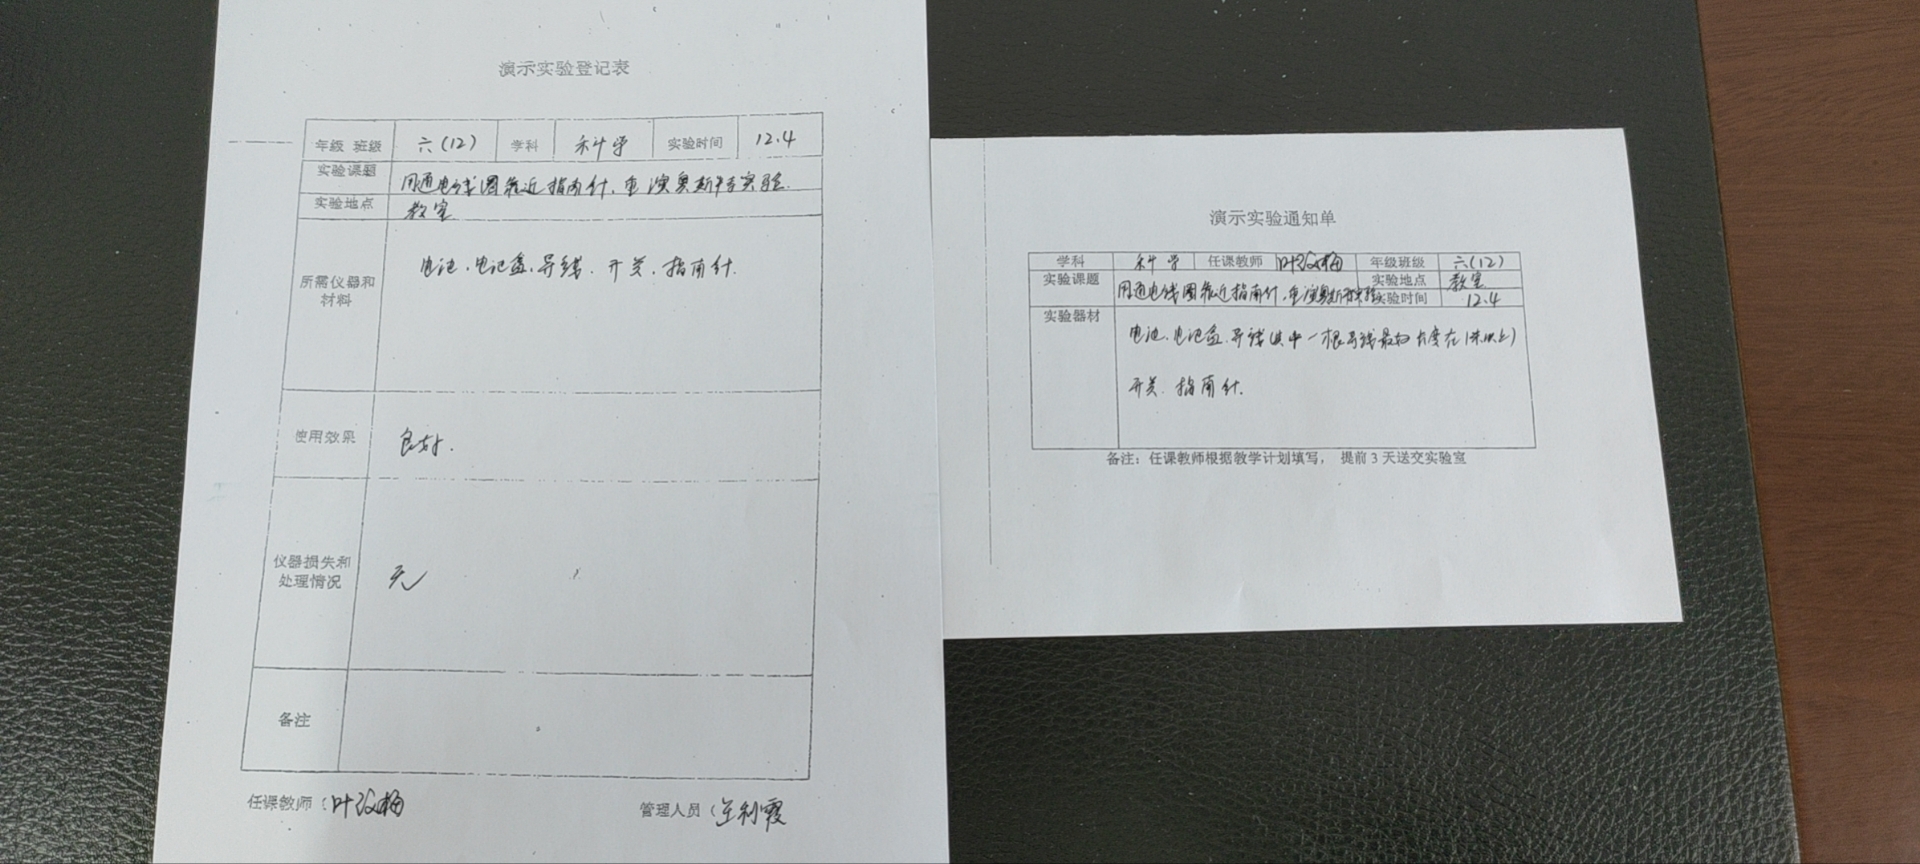 演示实验登记表
年级 班级 六(12) 学科 科学 实验时间 12.4
实验课题 用通电线圈靠近指南针,重演奥斯特实验.
实验地点 教室
所需仪器和
材料
电池、电池盒、导线、开关、指南针.
使用效果 良好.
仪器损失和
处理情况
无
备注
任课教师: 叶
管理人员: 利霞
演示实验通知单
学科 科学 任课教师 叶 年级班级 六(12)
实验课题 用通电线圈靠近指南针,重演奥斯特实验 实验地点 教室
实验时间 12.4
实验器材 电池、电池盒、导线(其中一根导线最好长度在1米以上)
开关、指南针.
备注:任课教师根据教学计划填写, 提前 3 天送交实验室